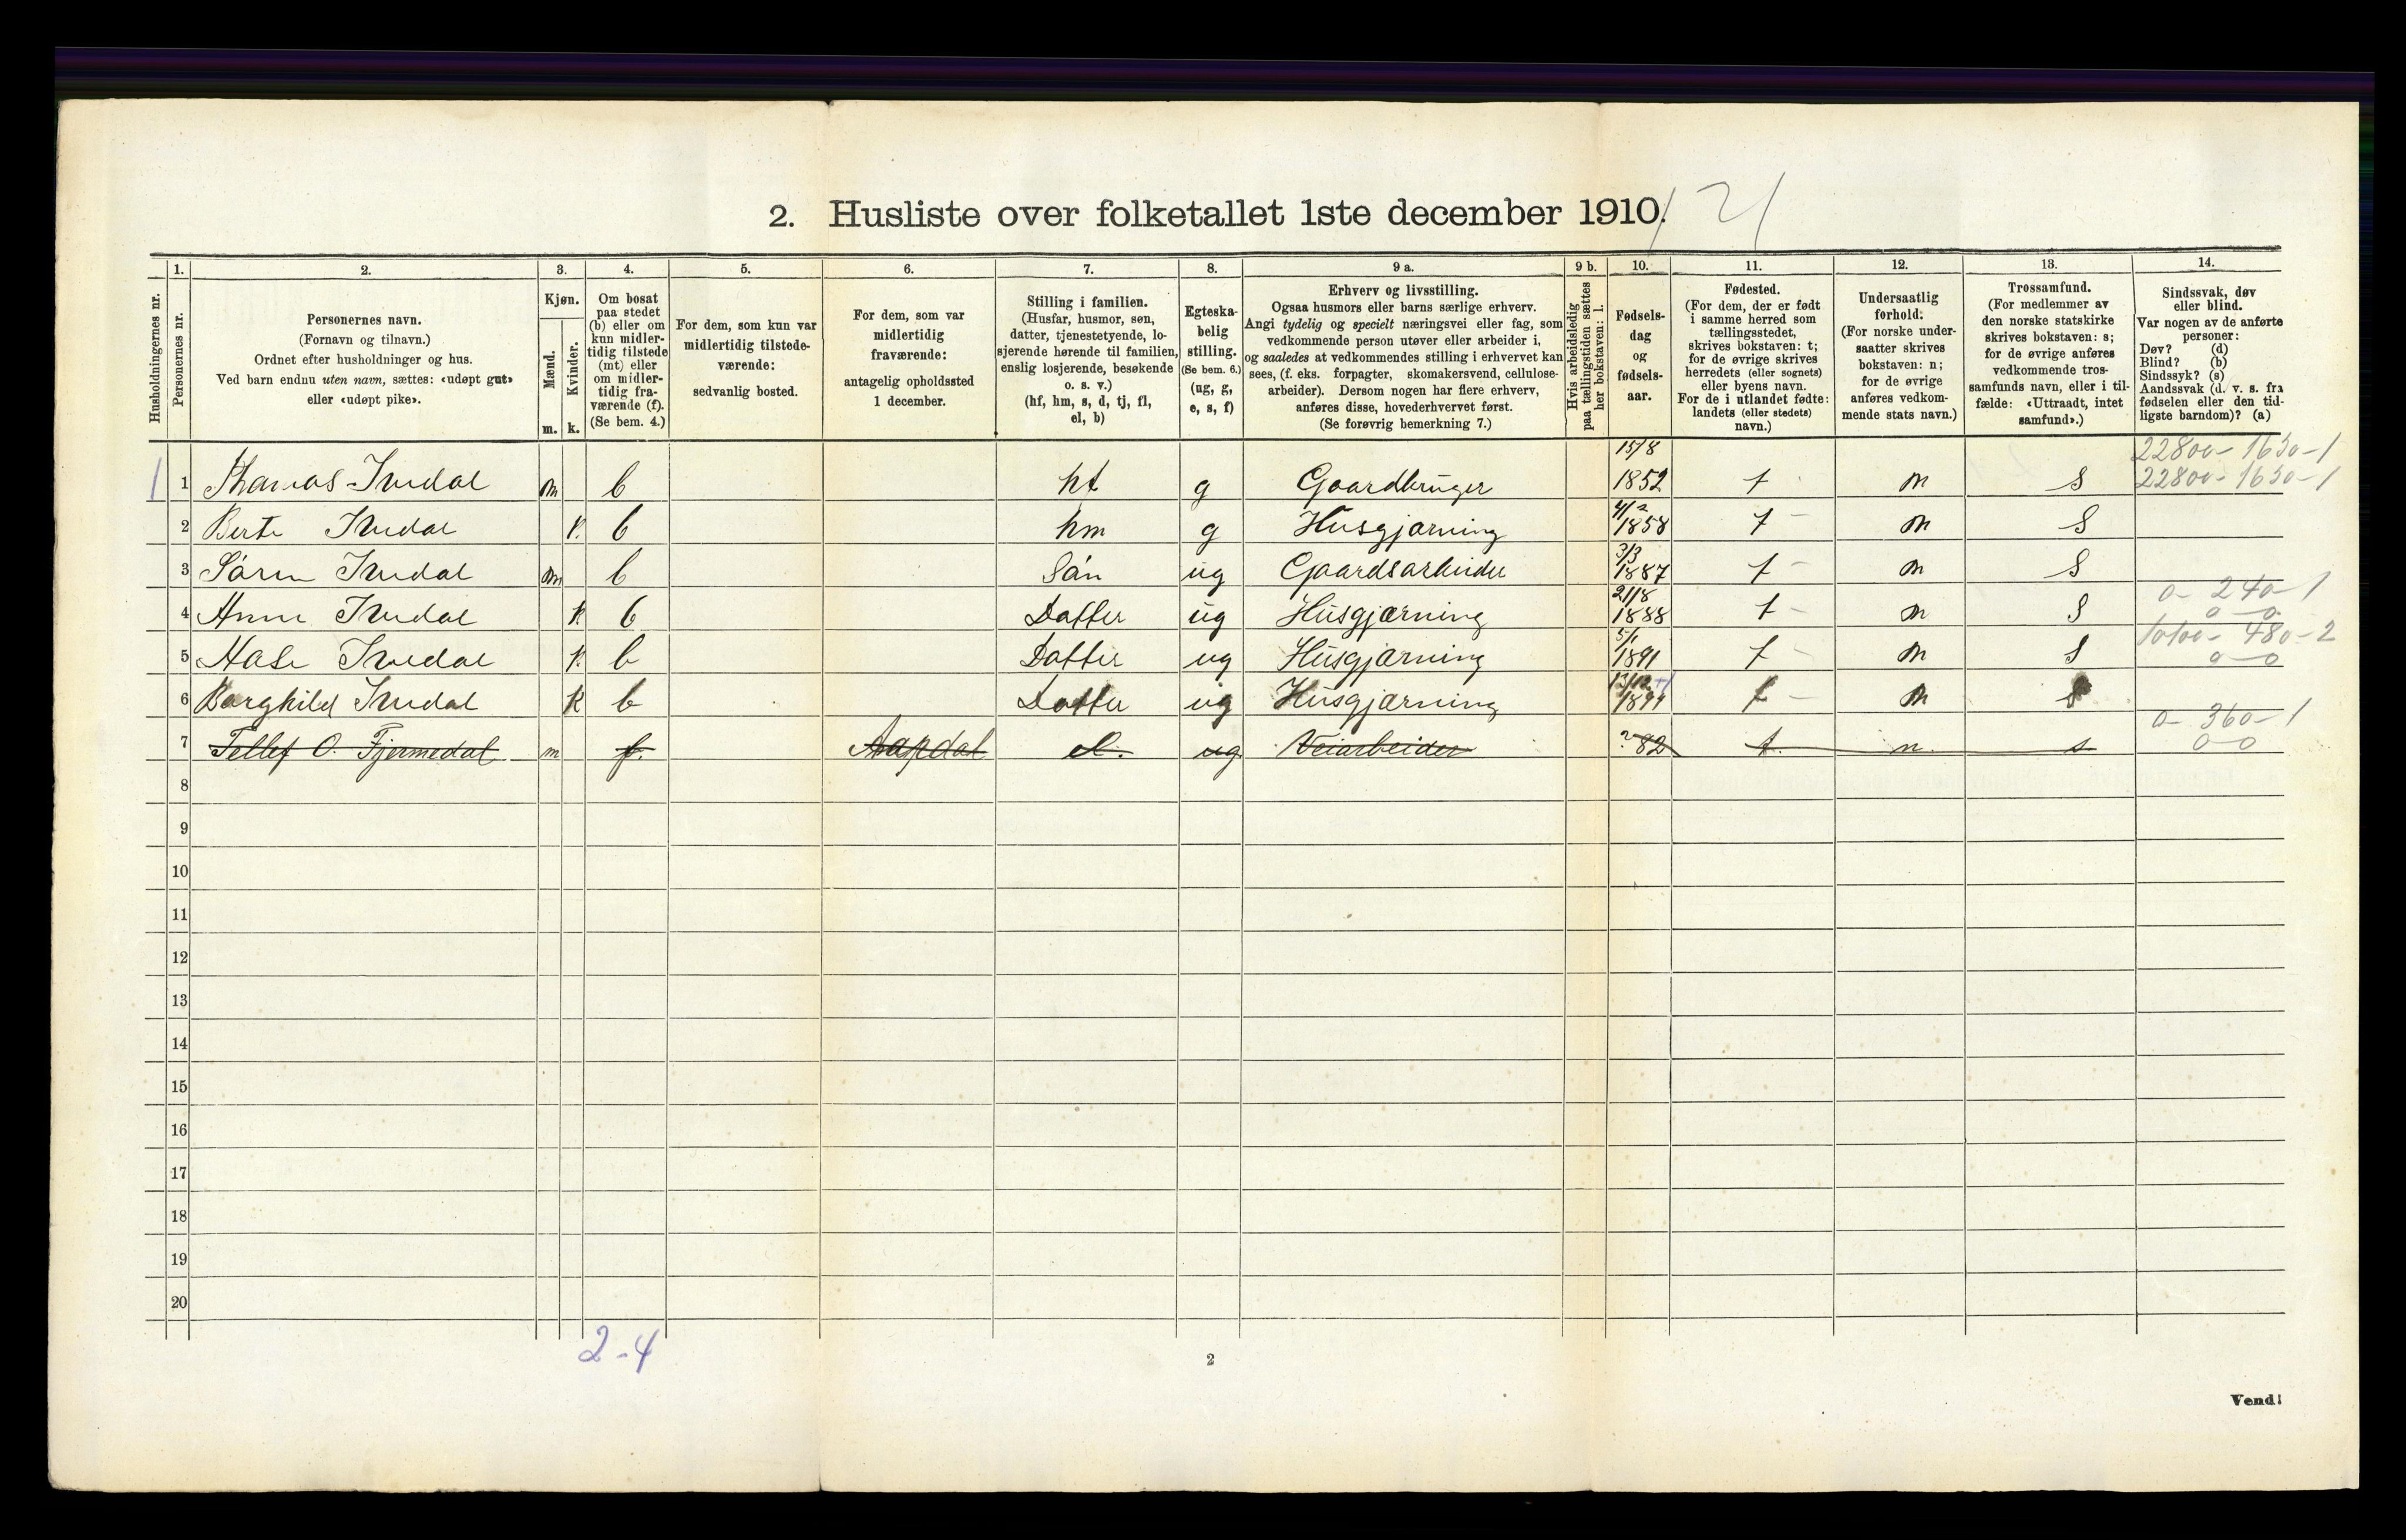 2. Husliste over folketallet 1ste december 1910.
1. 2. 3. 4. 5. 6. 7. 8. 9 a. 9 b. 10. 11. 12. 13. 14.
Husholdningernes nr.
Personernes nr.
Personernes navn.
(Fornavn og tilnavn.)
Ordnet efter husholdninger og hus.
Ved barn endnu uten navn, sættes: «udøpt gut»
eller «udøpt pike».
Kjøn.
Mænd.
Kvinder.
m. k.
Om bosat
paa stedet
(b) eller om
kun midler-
tidig tilstede
(mt) eller
om midler-
tidig fra-
værende (f).
(Se bem. 4.)
For dem, som kun var
midlertidig tilstede-
værende:
sedvanlig bosted.
For dem, som var
midlertidig
fraværende:
antagelig opholdssted
1 december.
Stilling i familien.
(Husfar, husmor, søn,
datter, tjenestetyende, lo-
sjerende hørende til familien,
enslig losjerende, besøkende
o. s. v.)
(hf, hm, s, d, tj, fl,
el, b)
Egteska-
belig
stilling.
(Se bem. 6.)
(ug, g,
e, s, f)
Erhverv og livsstilling.
Ogsaa husmors eller barns særlige erhverv.
Angi tydelig og specielt næringsvei eller fag, som
vedkommende person utøver eller arbeider i,
og saaledes at vedkommendes stilling i erhvervet kan
sees, (f. eks. forpagter, skomakersvend, cellulose-
arbeider). Dersom nogen har flere erhverv,
anføres disse, hovederhvervet først.
(Se forøvrig bemerkning 7.)
Hvis arbeidsledig
paa tællingstiden sættes
her bokstaven: l.
Fødsels-
dag
og
fødsels-
aar.
Fødested.
(For dem, der er født
i samme herred som
tællingsstedet,
skrives bokstaven: t;
for de øvrige skrives
herredets (eller sognets)
eller byens navn.
For de i utlandet fødte:
landets (eller stedets)
navn.)
Undersaatlig
forhold.
(For norske under-
saatter skrives
bokstaven: n;
for de øvrige
anføres vedkom-
mende stats navn.)
Trossamfund.
(For medlemmer av
den norske statskirke
skrives bokstaven: s;
for de øvrige anføres
vedkommende tros-
samfunds navn, eller i til-
fælde: «Uttraadt, intet
samfund».)
Sindssvak, døv
eller blind.
Var nogen av de anførte
personer:
Døv? (d)
Blind? (b)
Sindssyk? (s)
Aandssvak (d. v. s. fra
fødselen eller den tid-
ligste barndom)? (a)
22800 - 1630 - 1
1 1 Thomas Ivedal m b hf g Gaardbruger 15/8 1852 t n S 22800 - 1630 - 1
2 Berte Ivedal k b hm g Husgjærning 4/2 1858 t n S
3 Søren Ivedal m b Søn ug Gaardsarbeider 3/3 1887 t n S
0 - 240 - 1
4 Anne Ivedal k b Datter ug Husgjærning 21/8 1888 t n S 0 - 0
480 - 2
5 Aase Ivedal k b Datter ug Husgjærning 5/1 1891 t n S 0 - 0
6 Borghild Ivedal k b Datter ug Husgjærning t n s
0 - 360 - 1
7 Tellef O. Fjermedal m f. ug Veiarbeider ? 82 t. n. s 0 0
8
9
10
11
12
13
14
15
16
17
18
19
20
2 - 4
2
Vend!